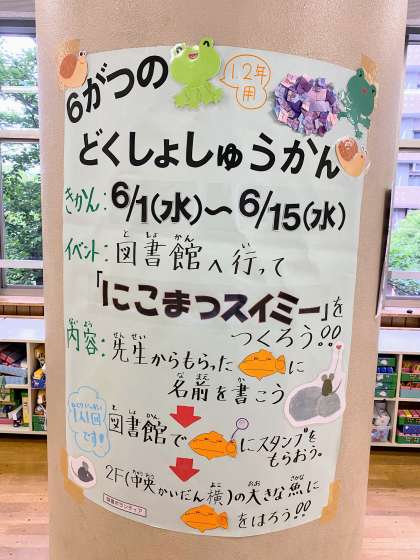 6がつの
1.2年用
どくしょしゅうかん
きかん：6/1(水)～6/15(水)
イベント：図書館へ行って
「にこまつスイミー」を
つくろう!!
内容：先生からもらった に
名前を書こう
図書館で にスタンプを
もらおう。
2F(中央かいだん横)の大きな魚に
をはろう!!
図書ボランティア